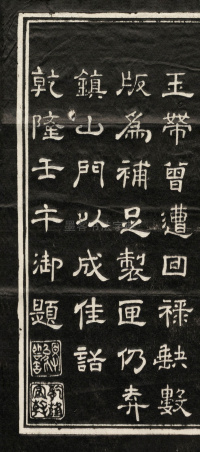 玉帶曾遭回祿缺數
版為補足製匣仍弆
鎮山門以成佳話
乾隆壬午御題